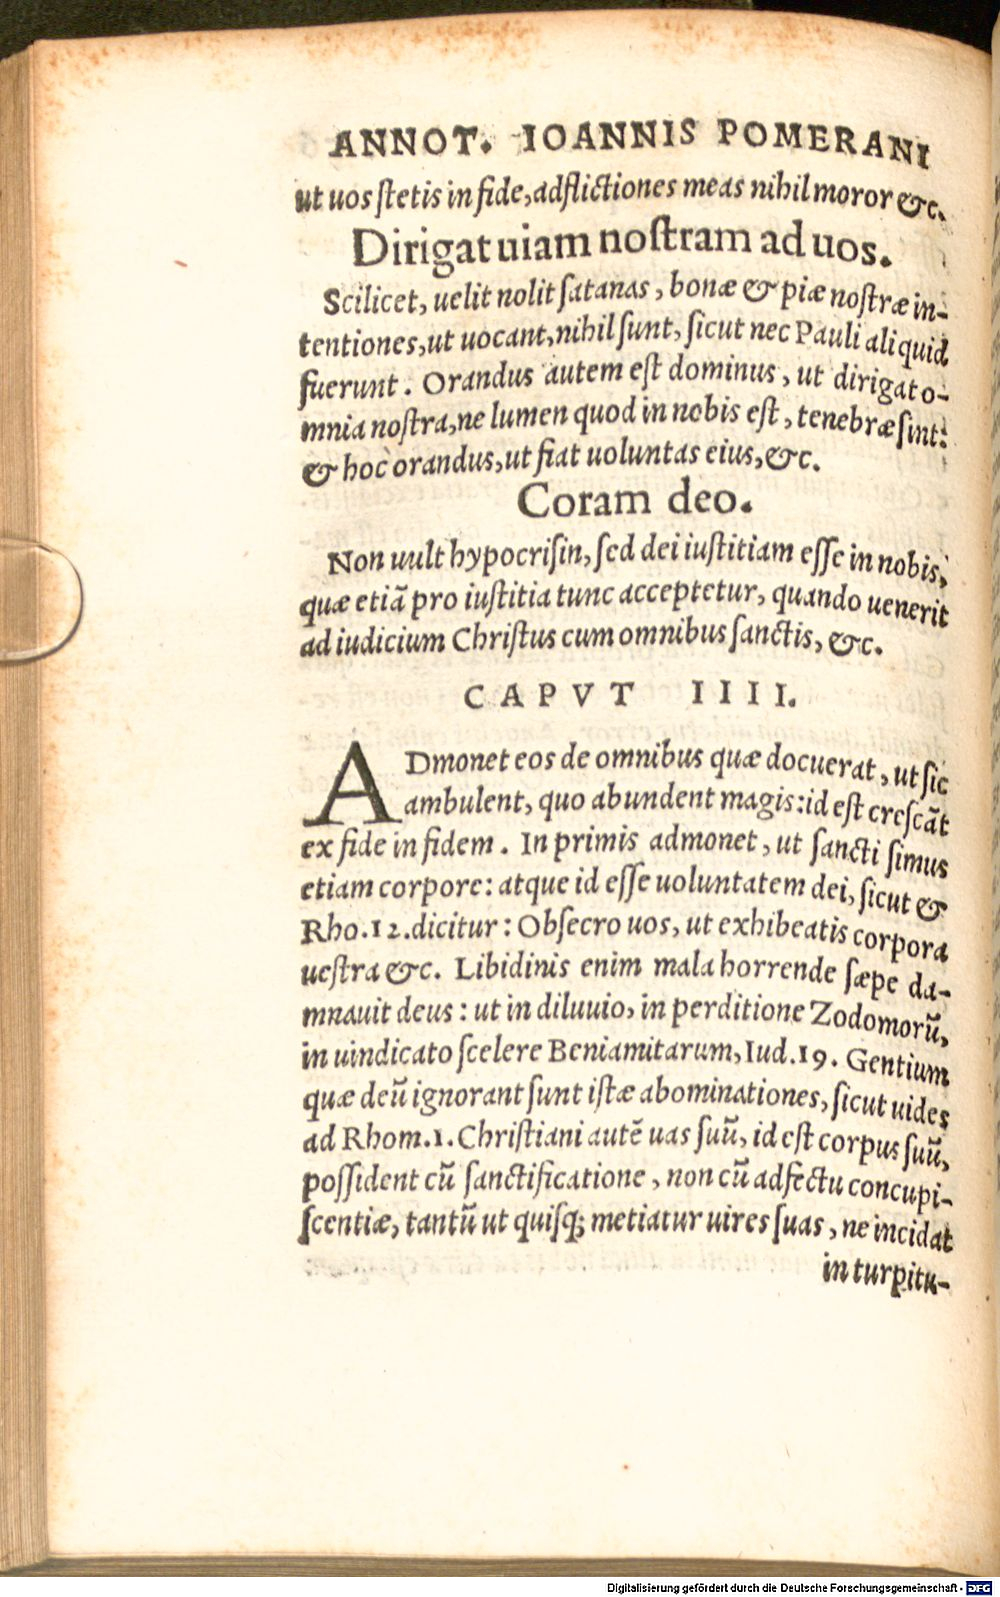 ANNOT. IOANNIS POMERANI
ut uos ſtetis in fide, adflictiones meas nihil moror &c.
Dirigat uiam noſtram ad uos.
Scilicet, uelit nolit ſatanas, bonæ & piæ noſtræ in-
tentiones, ut uocant, nihil ſunt, ſicut nec Pauli aliquid
fuerunt. Orandus autem eſt dominus, ut dirigat o-
mnia noſtra, ne lumen quod in nobis eſt, tenebræ ſint:
& hoc orandus, ut fiat uoluntas eius, &c.
Coram deo.
Non uult hypocriſin, ſed dei iuſtitiam eſſe in nobis,
quæ etiã pro iuſtitia tunc acceptetur, quando uenerit
ad iudicium Chriſtus cum omnibus ſanctis, &c.
CAPVT IIII.
ADmonet eos de omnibus quæ docuerat, ut ſic
ambulent, quo abundent magis: id eſt creſcãt
ex fide in fidem. In primis admonet, ut ſancti ſimus
etiam corpore: atque id eſſe uoluntatem dei, ſicut &
Rho.12.dicitur: Obſecro uos, ut exhibeatis corpora
ueſtra &c. Libidinis enim mala horrende ſæpe da-
mnauit deus: ut in diluuio, in perditione Zodomorũ,
in uindicato ſcelere Beniamitarum, Iud.19. Gentium
quæ deũ ignorant ſunt iſtæ abominationes, ſicut uides
ad Rhom.1. Chriſtiani autẽ uas ſuũ, id eſt corpus ſuũ,
poſſident cũ ſanctificatione, non cũ adfectu concupi-
ſcentiæ, tantũ ut quiſq; metiatur uires ſuas, ne incidat
in turpitu-
Digitalisierung gefördert durch die Deutsche Forschungsgemeinschaft - DFG